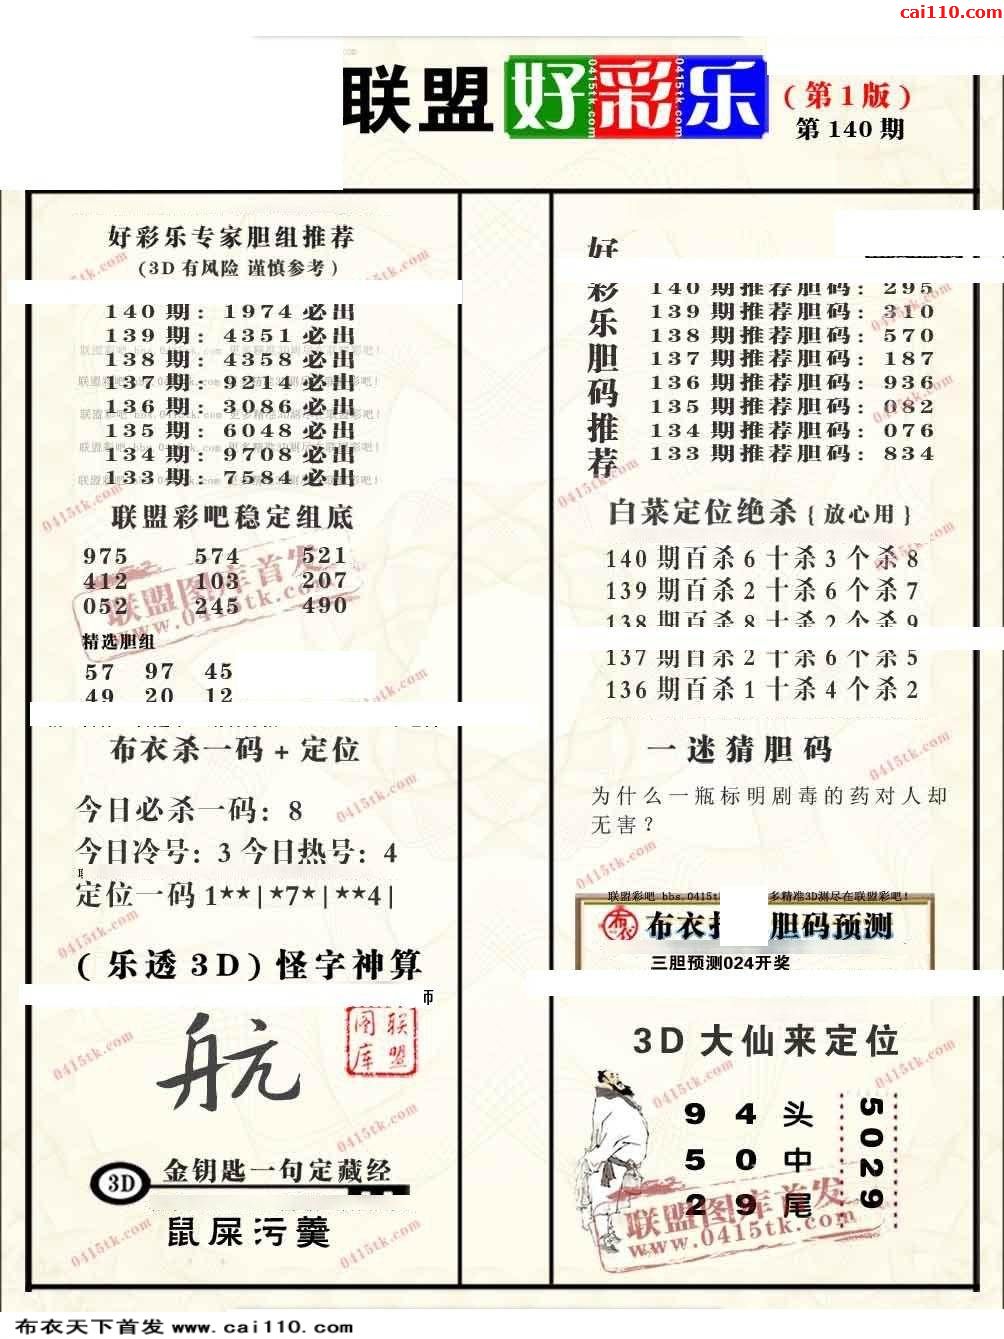 cai110.com
联盟 好彩乐 (第1版)
第 140 期
好彩乐专家胆组推荐
(3D 有风险 谨慎参考)
140 期: 1974 必出
139 期: 4351 必出
138 期: 4358 必出
137 期: 9214 必出
136 期: 3086 必出
135 期: 6048 必出
134 期: 9708 必出
133 期: 7584 必出
联盟彩吧稳定组底
975 574 521
412 103 207
052 245 490
精选胆组
57 97 45
49 20 12
布衣杀一码 + 定位
今日必杀一码: 8
今日冷号: 3 今日热号: 4
定位一码 1**|*7*|**4|
(乐透 3D) 怪字神算
师
航
联盟图库
3D 金钥匙一句定藏经
鼠屎污羹
好彩乐胆码推荐
140 期推荐胆码: 295
139 期推荐胆码: 310
138 期推荐胆码: 570
137 期推荐胆码: 187
136 期推荐胆码: 936
135 期推荐胆码: 082
134 期推荐胆码: 076
133 期推荐胆码: 834
白菜定位绝杀 { 放心用 }
140 期百杀 6 十杀 3 个杀 8
139 期百杀 2 十杀 6 个杀 7
138 期百杀 8 十杀 2 个杀 9
137 期百杀 2 十杀 6 个杀 5
136 期百杀 1 十杀 4 个杀 2
一迷猜胆码
为什么一瓶标明剧毒的药对人却
无害?
联盟彩吧 bbs.0415t 多精准3D测尽在联盟彩吧!
布衣 布衣 胆码预测
三胆预测024开奖
3D 大仙来定位
9 4 头
5 0 中
2 9 尾
5029
联盟图库首发
www.0415tk.com
布衣天下首发 www.cai110.com